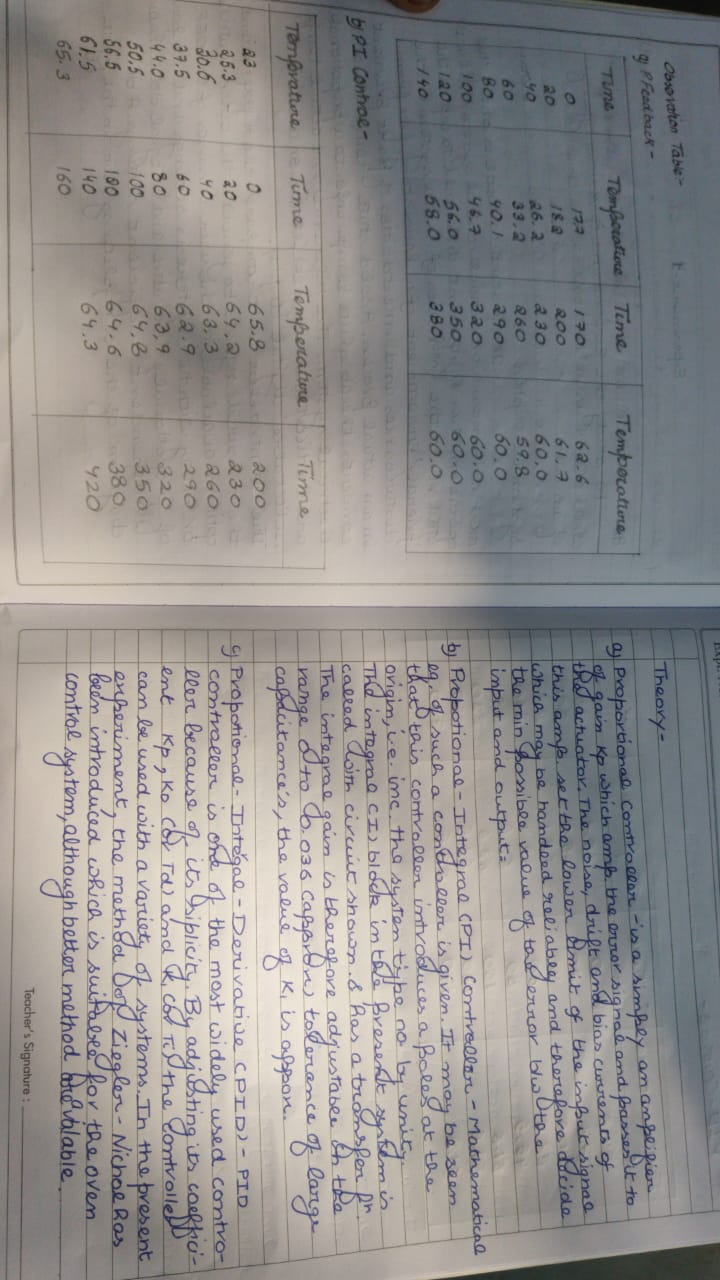 Observation Table:-
a) P Feedback -
Time Temperature Time Temperature
0 17.7 170 62.6
20 18.2 200 61.7
40 26.2 230 60.0
60 33.2 260 59.8
80 40.1 290 60.0
100 46.7 320 60.0
120 56.0 350 60.0
140 58.0 380 60.0
b) PI Control-
Temperature Time Temperature Time
23 0 65.8 200
25.3 20 64.2 230
30.6 40 63.3 260
37.5 60 62.9 290
44.0 80 63.9 320
50.5 100 64.8 350
56.5 64.6 380
61.5 140 64.3 420
65.3 160
Theory-
a) Proportional Controller - is a simpley an amplifier
of gain Kp which amp the error signal and passes it to
the actuator. The noise, drift and bias currents of
this amp set the lower limit of the input signal
which may be handeed reliabley and therefore decide
the min possible value of the error b/w the
input and output=
b) Propotional - Integral (PI) Controller - Mathematical
eq. of such a controller is given. It may be seen
that this controller introduces a Poles at the
origin, i.e. inc. the system type no by unity.
The integral (I) block in the present system is
called with circuit shown & has a transfer fn.
The integral gain is therefore adjustable in the
range 0 to 0.036 (approx) tolerence of large
capacitance's, the value of K, is approx.
c) Propotional - Integal - Derivative (PID) - PID
controller is one of the most widely used contro-
ller because of its siplicity. By adjusting its coeffici-
ent Kp, KD (or Td) and the controlled
can be used with a variety of systems. In the present
experiment, the method of Ziegler - Nichol has
been introduced which is suitable for the oven
control system, although better method are avilable.
Teacher's Signature :